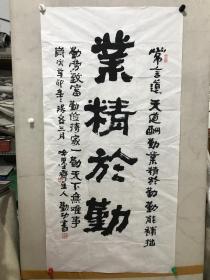 常言道天道酬勤業精於勤勤能補拙
業精於勤
勤劳致富勤儉持家一勤天下無難事
歲次辛卯年
三月
主人勤功書